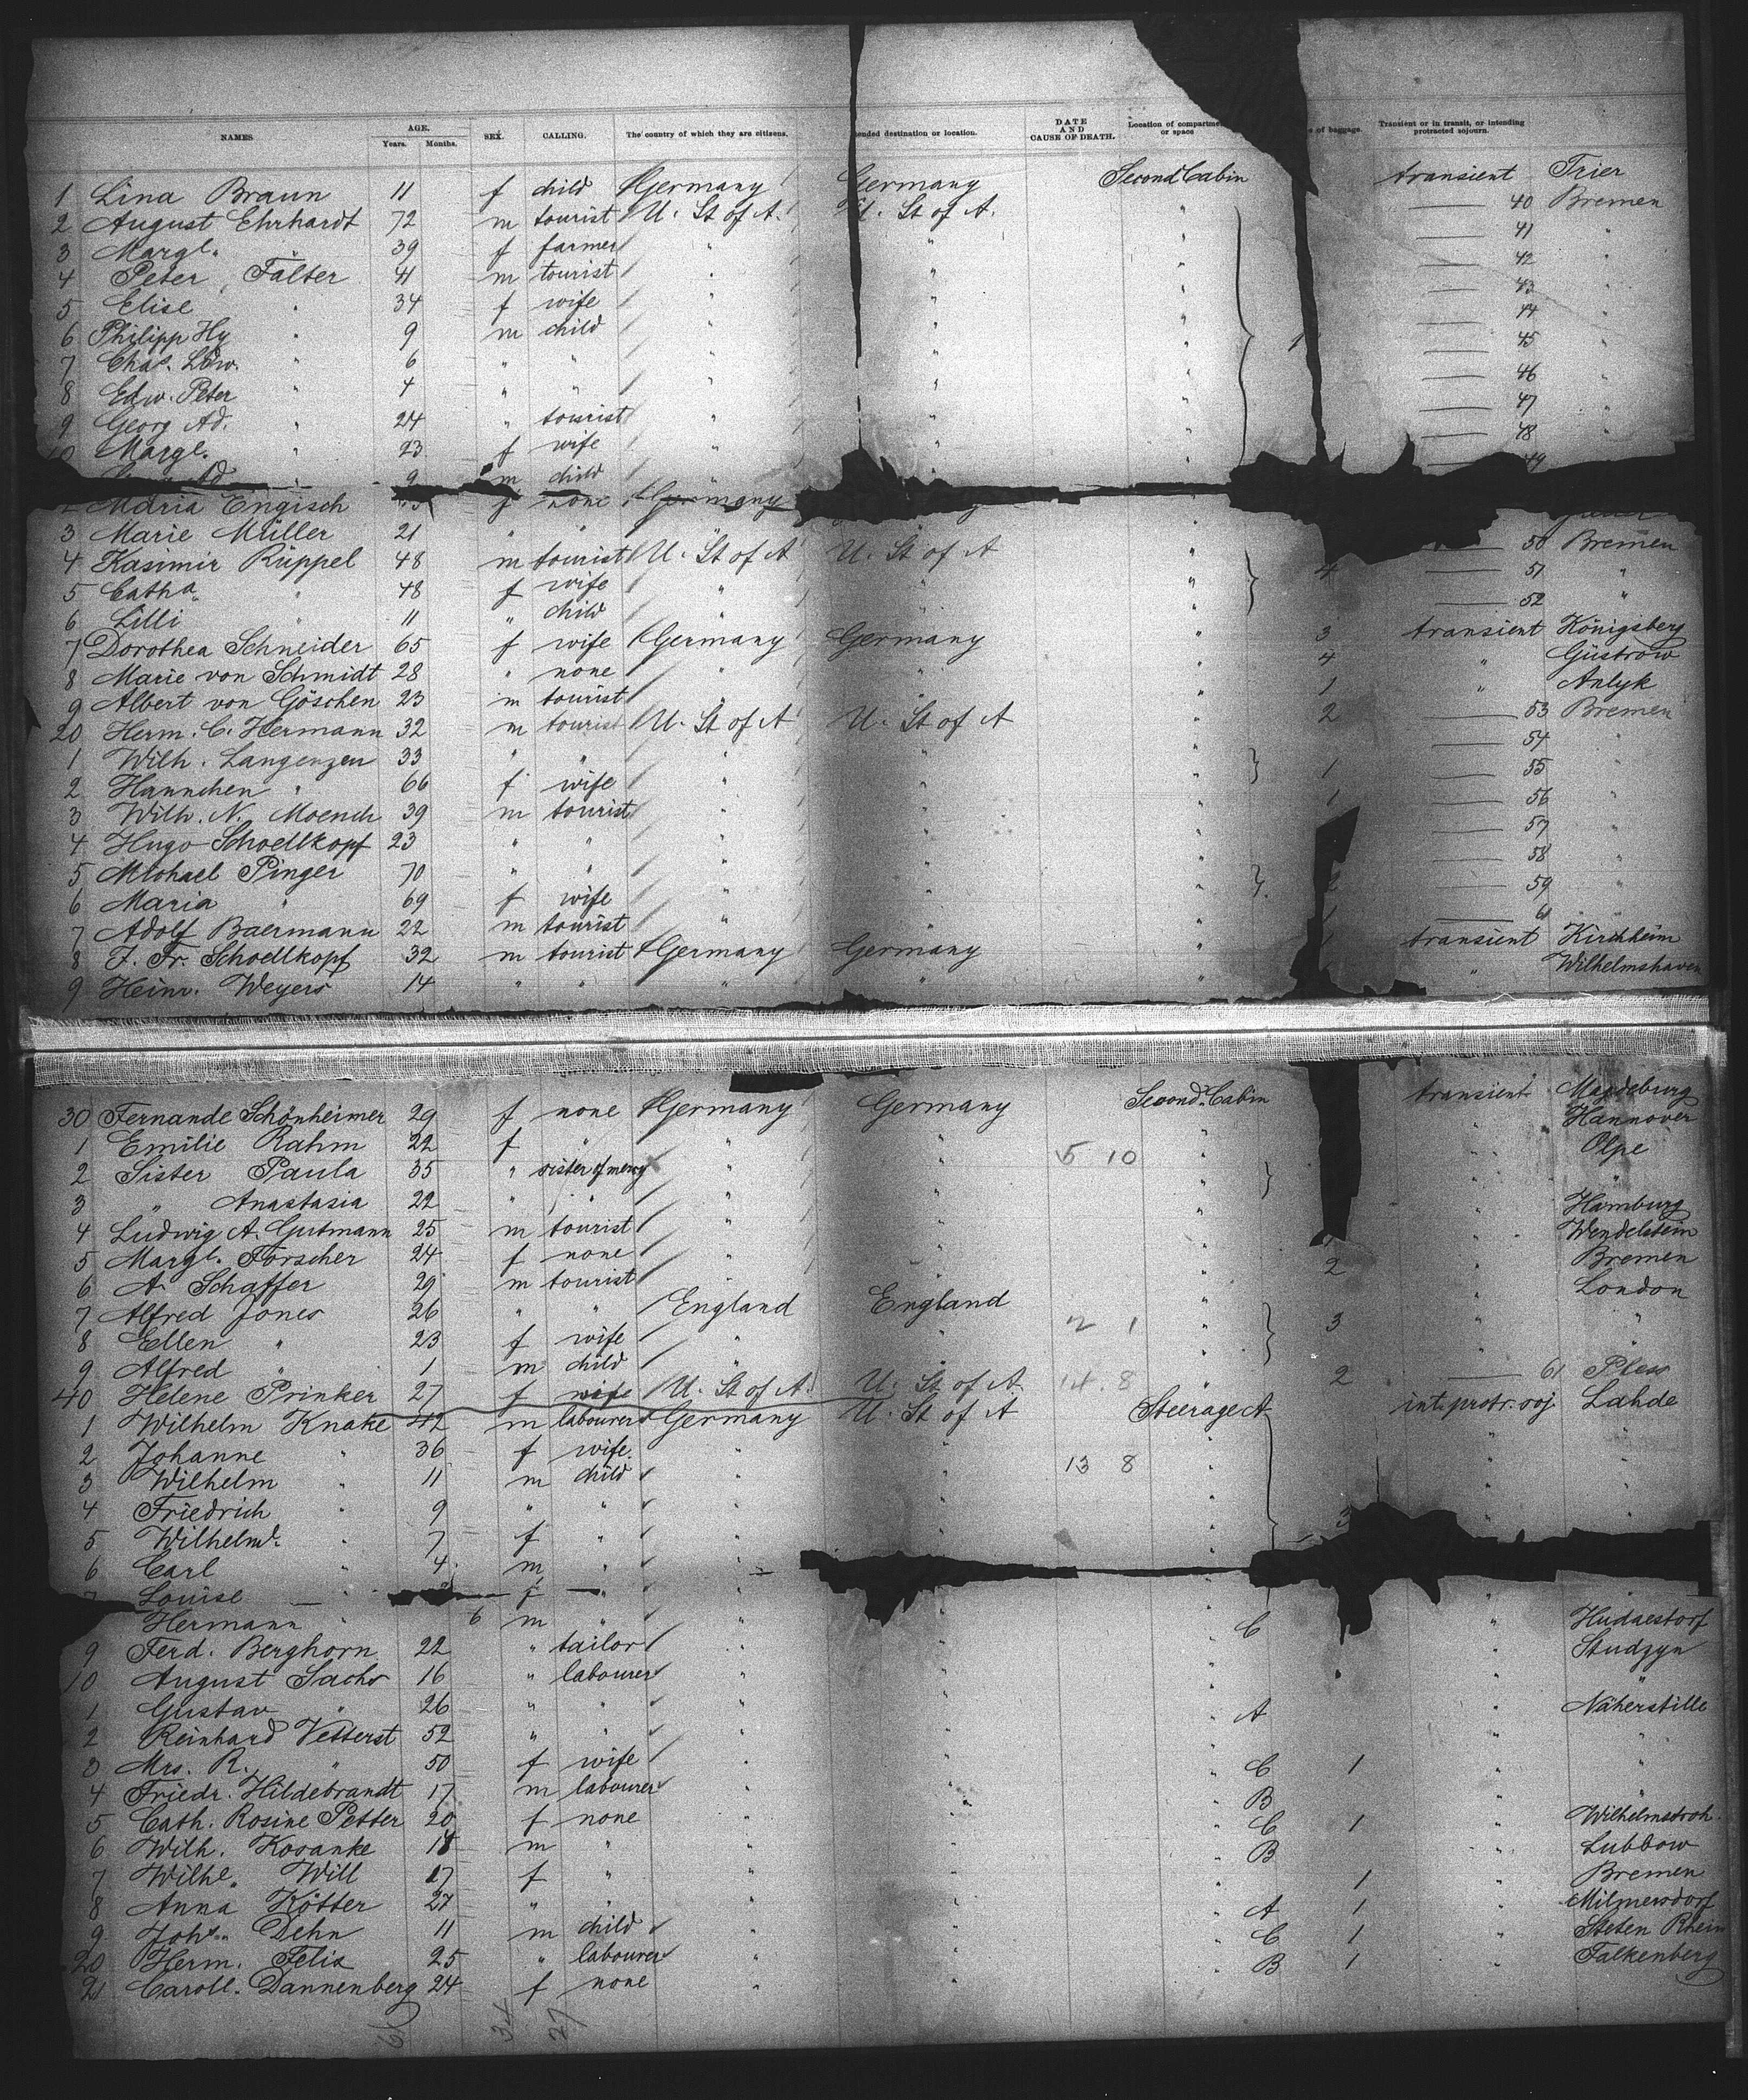 NAMES AGE. Years. Months. SEX. CALLING. The country of which they are citizens. ended destination or location. DATE AND CAUSE OF DEATH. Location of compartme or space of baggage. Transient or in transit, or intending protracted sojourn.
1 Lina Braun 11 f child Germany Germany Second Cabin transient Trier
2 August Ehrhardt 72 m tourist U. St of A. U. St of A. " 40 Bremen
3 Margt. " 39 f farmer " " " 41 "
4 Peter Falter 41 m tourist " " " 42 "
5 Elise " 34 f wife " " " 43 "
6 Philipp Hy " 9 m child " " " 44 "
7 Chas. Ldw. " 6 " " " " " 45 "
8 Edw. Peter " 4 " " " " " 46 "
9 Georg Ad. " 24 " tourist " " " 47 "
10 Margt. " 23 f wife " " " 48 "
Ad. " 9 m child " 49
2 Maria Engisch f none Germany
3 Marie Müller 21 " "
4 Kasimir Rüppel 48 m tourist U. St of A U. St of A " 4 50 Bremen
5 Catha. " 48 f wife " " " 51 "
6 Lilli " 11 " child " " " 52 "
7 Dorothea Schneider 65 f wife Germany Germany " 3 transient Königsberg
8 Marie von Schmidt 28 " none " " " 4 " Güstrow
9 Albert von Göschen 23 m tourist " " " 1 " Anlyk
20 Herm. C. Hermann 32 m tourist U. St of A U. St of A " 2 53 Bremen
1 Wilh. Langenzen 33 " " " " " 54 "
2 Hannchen " 66 f wife " " " 1 55 "
3 Wilh. N. Moench 39 m tourist " " " 1 56 "
4 Hugo Schoellkopf 23 " " " " " 57 "
5 Michael Pinger 70 " " " " " 58 "
6 Maria " 69 f wife " " " 59 "
7 Adolf Baermann 22 m tourist " " " 1
8 J. Fr. Schoellkopf 32 m tourist Germany Germany " 1 transient Kirchheim
9 Heinr. Weyers 14 " " " " " " Wilhelmshaven
30 Fernande Schönheimer 29 f none Germany Germany Second Cabin transient Magdeburg
1 Emilie Rahm 22 f " " " " " Hannover
2 Sister Paula 35 " sister of mercy " " 5 10 " " Olpe
3 " Anastasia 22 " " " " " " "
4 Ludwig A. Gutmann 25 m tourist " " " " Hamburg
5 Margt. Forscher 24 f none " " " " Wendelstein
6 A. Schaffer 29 m tourist " " " 2 " Bremen
7 Alfred Jones 26 " " England England " " London
8 Ellen " 23 f wife " " 2 1 " 3 " "
9 Alfred " 1 m child " " " " "
40 Helene Prinker 27 f wife U. St of A. U. St of A. 14. 8 " 2 61 Pless
1 Wilhelm Knake 42 m labourer Germany U. St of A Steerage A int. protr. soj. Lahde
2 Johanne " 36 f wife " " " " "
3 Wilhelm " 11 m child " " 13 8 " " "
4 Friedrich " 9 " " " " " " "
5 Wilhelme. " 7 f " " " " 3 " "
6 Carl " 4 m " " "
7 Louise " f " "
Hermann " 6 m " " " "
9 Ferd. Berghorn 22 " tailor " " " C " Hudaestorf
10 August Sachs 16 " labourer " " " " Studzyn
1 Gustav " 26 " " " " " " "
2 Reinhard Vetterst 52 " " " " " A " Näherstille
3 Mrs. R. " 50 f wife " " " " "
4 Friedr. Hildebrandt 17 m labourer " " " C 1 " "
5 Cath. Rosine Petter 20 f none " " " B " "
6 Wilh. Kosanke 18 m " " " " C 1 " Wilhelmsbroh.
7 Wilhe. Will 17 f " " " " B " Lubbow
8 Anna Kötter 27 " " " " " 1 " Bremen
9 Johs. Dehn 11 m child " " " A 1 " Milmersdorf
20 Herm. Felix 25 " labourer " " " C 1 " Steten Rhein
21 Caroll. Dannenberg 24 f none " " " B 1 " Falkenberg
61 34 27